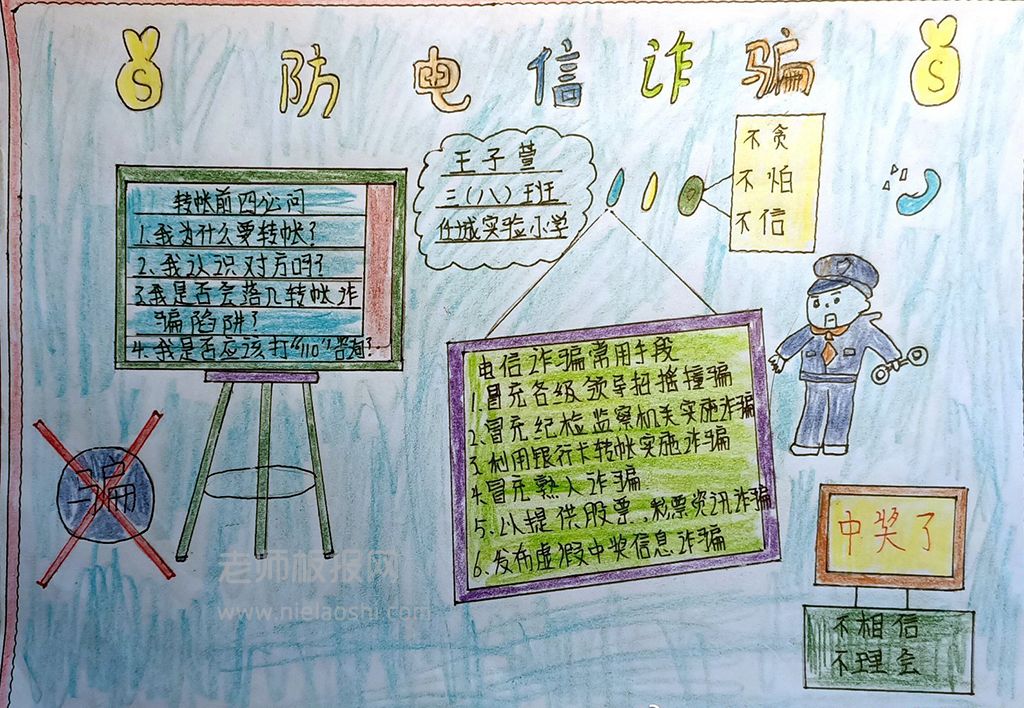 防电信诈骗
王子萱
三(八)班
任城实验小学
不贪
不怕
不信
转帐前四公问
1.我为什么要转帐?
2、我认识对方吗?
3.我是否会落入转帐诈
骗陷阱?
4.我是否应该打"110"咨询?
电信诈骗常用手段
1.冒充各级领导招摇撞骗
2.冒充纪检监察机关实施诈骗
3.利用银行卡转帐实施诈骗
4.冒充熟人诈骗
5.以提供股票、彩票资讯诈骗
6.发布虚假中奖信息诈骗
骗
中奖了
不相信
不理会
老师板报网
www.nielaoshi.com